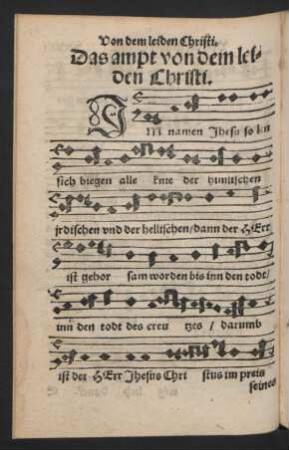 Von dem leiden Christi.
Das ampt von dem lei-
den Christi.
IM namen Jhesu so len
sich biegen alle knie der himlischen
jrdischen vnd der hellischen/dann der HErr
ist gehor sam worden bis inn den todt/
inn den todt des creu tzes / darumb
ist der HErr Jhesus Chri stus im preis
seines